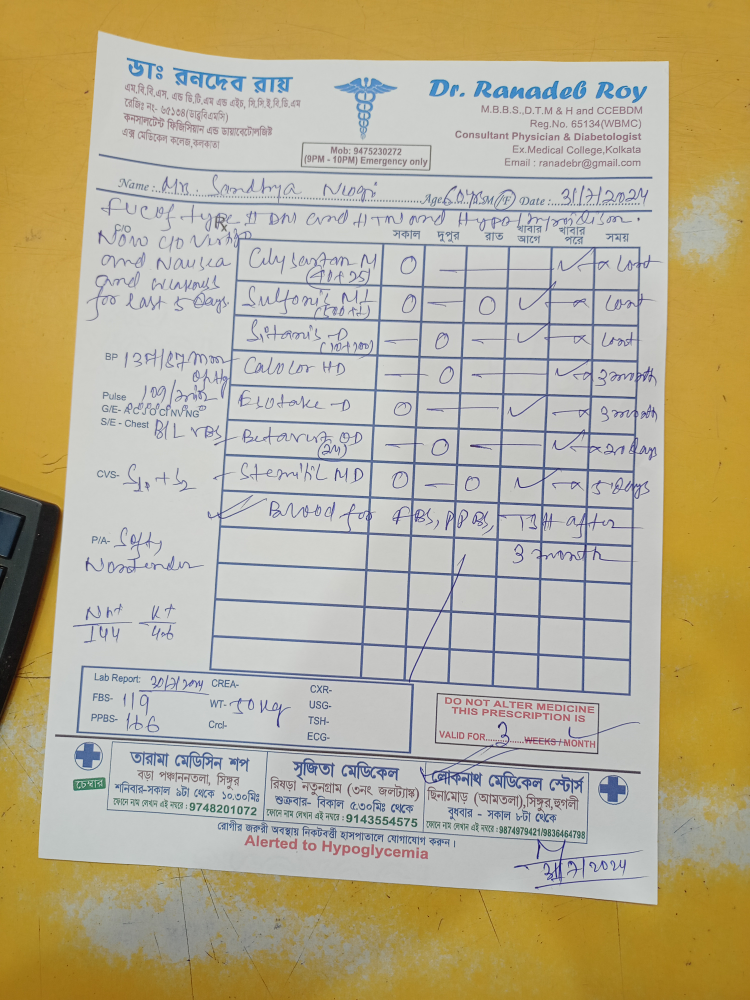 ডাঃ রনদেব রায়
এম.বি.বি.এস. এন্ড ডি.টি.এম এন্ড এইচ, সি.সি.ই.বি.ডি.এম
রেজিঃ নং- ৬৫১৩৪(ডাব্লুবিএমসি)
কনসালটেন্ট ফিজিসিয়ান এন্ড ডায়াবেটোলজিষ্ট
এক্স মেডিকেল কলেজ, কলকাতা
Mob: 9475230272
(9PM - 10PM) Emergency only
Dr. Ranadeb Roy
M.B.B.S.,D.T.M & H and CCEBDM
Reg.No. 65134(WBMC)
Consultant Physician & Diabetologist
Ex.Medical College,Kolkata
Email : ranadebr@gmail.com
Name : Mrs. Sandhya Niogi Age 60 yrs M/F Date : 31/7/2024
F/U C of type II DM and HTN and Hypothyroidism.
C/O Rx
Now C/O Vertigo
and Nausea
and weakness
for last 5 Days.
সকাল দুপুর রাত খাবার আগে খাবার পরে সময়
Cilysartan M (40+25) O — ✓ x cont
Sulfonic M1 (500+1) O — O ✓ — x cont
Sitanis-D (10+100) — O — ✓ — x cont
BP 137/87 mm of Hg
Calolor HD — O — ✓ x 3 month
Pulse 109/min
G/E- A° C° J° C° C° NV° NG°
Esotake-D O — ✓ — x 3 month
S/E - Chest B/L VBS
Betavert OD (24) — O — ✓ x 20 days
CVS- S1 + S2
Stemitil MD O — O ✓ — x 5 Days
✓ Blood for FBS, PPBS, TSH after
3 month
P/A- Soft,
Nontender
Na+ K+
144 4.6
Lab Report: 30/7/2024 CREA- CXR-
FBS- 119 WT- 50 kg USG-
PPBS- 166 Crcl- TSH-
ECG-
DO NOT ALTER MEDICINE
THIS PRESCRIPTION IS
VALID FOR 3 WEEKS / MONTH
চেম্বার
তারামা মেডিসিন শপ
বড়া পঞ্চাননতলা, সিঙ্গুর
শনিবার-সকাল ৯টা থেকে ১০.৩০মিঃ
ফোনে নাম লেখান এই নম্বরে : 9748201072
সৃজিতা মেডিকেল
রিষড়া নতুনগ্রাম (৩নং জলট্যাঙ্ক)
শুক্রবার- বিকাল ৫.৩০মিঃ থেকে
ফোনে নাম লেখান এই নম্বরে : 9143554575
লোকনাথ মেডিকেল স্টোর্স
ছিনামোড় (আমতলা),সিঙ্গুর,হুগলী
বুধবার - সকাল ৮টা থেকে
ফোনে নাম লেখান এই নম্বরে : 9874979421/9836464798
রোগীর জরুরী অবস্থায় নিকটবর্ত্তী হাসপাতালে যোগাযোগ করুন।
Alerted to Hypoglycemia
31/7/2024